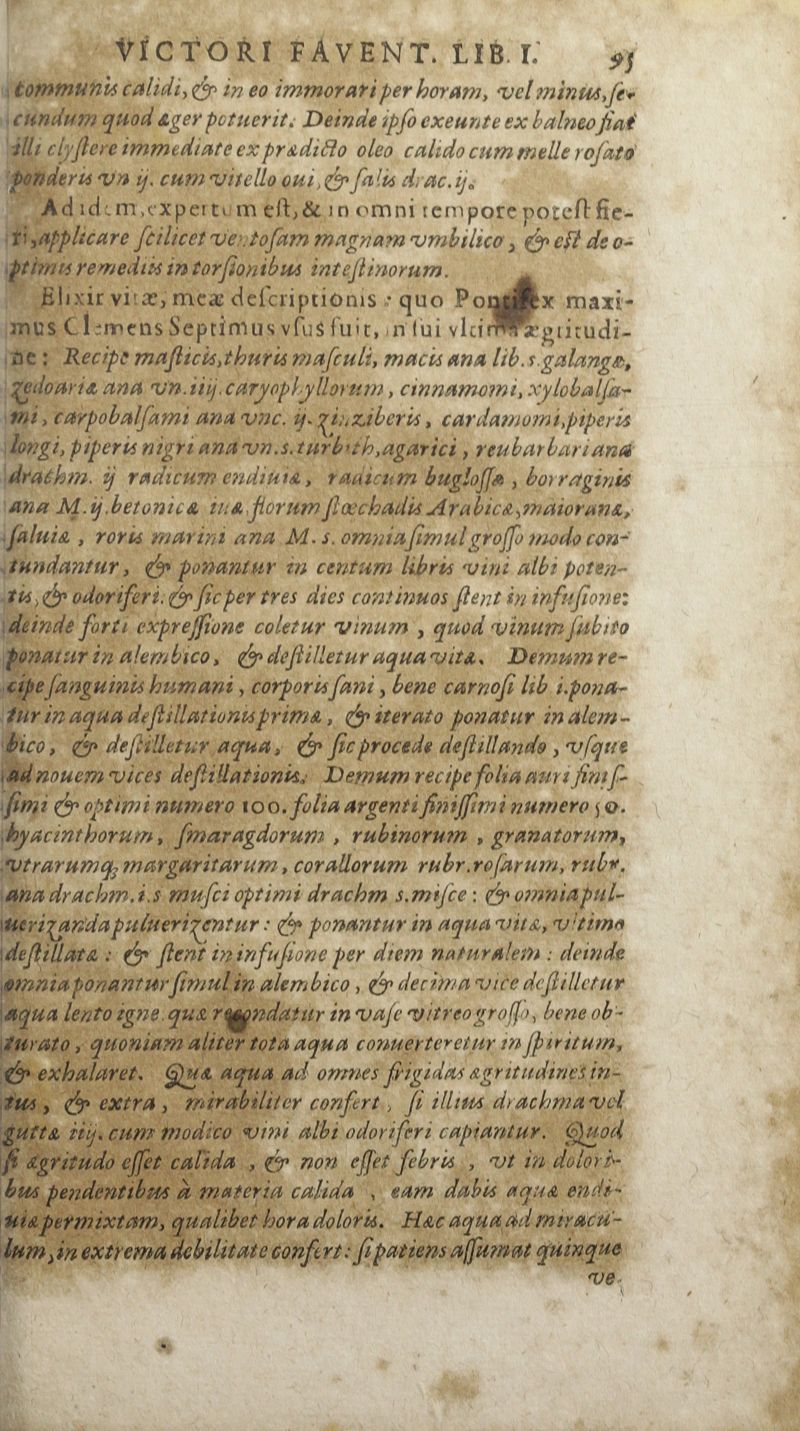 VICTORI FAVENT. LIB. I. 95
communis calidi, & in eo immorari per horam, vel minus, se-
cundum quod æger potuerit. Deinde ipso exeunte ex balneo fiat
illi clystere immediate ex prædicto oleo calido cum melle rosato
ponderis vn ij. cum vitello oui, & salis drac. ij.
Ad idem, expertum est, & in omni tempore potest fie-
ri, applicare scilicet ventosam magnam vmbilico, & est de o-
ptimis remediis in torsionibus intestinorum.
Elixir vitæ, meæ descriptionis: quo Pontifex maxi-
mus Clemens Septimus vsus fuit, in sui vltima ægritudi-
ne: Recipe masticis, thuris masculi, macis ana lib. s. galangæ,
zedoariæ ana vn. iiij. caryophyllorum, cinnamomi, xylobalsa-
mi, carpobalsami ana vnc. ij. zinziberis, cardamomi, piperis
longi, piperis nigri ana vn. s. turbith, agarici, reubarbari ana
drachm. ij radicum endiuiæ, radicum buglossæ, borraginis
ana M. ij. betonicæ iuæ, florum stœchadis Arabicæ, maioranæ,
saluiæ, roris marini ana M. s. omnia simul grosso modo con-
tundantur, & ponantur in centum libris vini albi poten-
tis, & odoriferi. & sic per tres dies continuos stent in infusione:
deinde forti expressione coletur vinum, quod vinum subito
ponatur in alembico, & destilletur aqua vitæ. Demum re-
cipe sanguinis humani, corporis sani, bene carnosi lib i. pona-
tur in aqua destillationis primæ, & iterato ponatur in alem-
bico, & destilletur aqua, & sic procede destillando, vsque
ad nouem vices destillationis. Demum recipe folia auri finis-
simi & optimi numero 100. folia argenti finissimi numero 50.
hyacinthorum, smaragdorum, rubinorum, granatorum,
vtrarumq; margaritarum, corallorum rubr. rosarum, rubr.
ana drachm. i. s musci optimi drachm s. misce: & omnia pul-
uerizanda puluerizentur: & ponantur in aqua vitæ, vltimo
destillata: & stent in infusione per diem naturalem: deinde
omnia ponantur simul in alembico, & decima vice destilletur
aqua lento igne. quæ recondatur in vase vitreo grosso, bene ob-
turato, quoniam aliter tota aqua conuerteretur in spiritum,
& exhalaret. Quæ aqua ad omnes frigidas ægritudines in-
tus, & extra, mirabiliter confert, si illius drachma vel
guttæ iiij. cum modico vini albi odoriferi capiantur. Quod
si ægritudo esset calida, & non esset febris, vt in dolori-
bus pendentibus à materia calida, eam dabis aquæ endi-
uiæ permixtam, qualibet hora doloris. Hæc aqua ad miracu-
lum, in extrema debilitate confert: si patiens assumat quinque
ve-